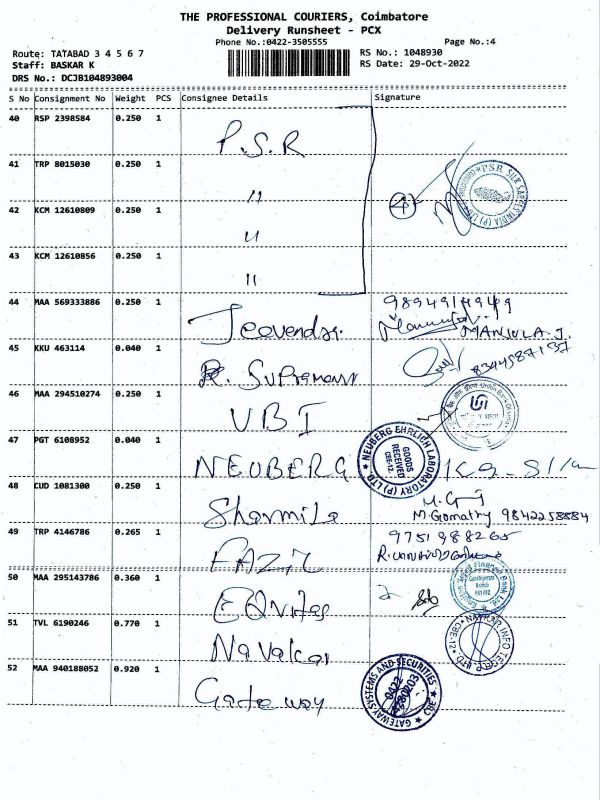 THE PROFESSIONAL COURIERS, Coimbatore
Delivery Runsheet - PCX
Phone No.:0422-3505555
Page No.:4
Route: TATABAD 3 4 5 6 7
RS No.: 1048930
Staff: BASKAR K
RS Date: 29-Oct-2022
DRS No.: DCJB104893004
S No Consignment No Weight PCS Consignee Details Signature
40 RSP 2398584 0.250 1 P.S.R
41 TRP 8015030 0.250 1 "
P.S.R. SILK SAREES INDIA (P) LTD
42 KCM 12610809 0.250 1 "
43 KCM 12610856 0.250 1 "
44 MAA 569333886 0.250 1
MANJULA.J.
45 KKU 463114 0.040 1
8344587137
46 MAA 294510274 0.250 1 UBI
47 PGT 6108952 0.040 1 NEUBERG
NEUBERG EHRLICH LABORATORY (P) LTD
GOODS
RECEIVED
CBE-12
48 CUD 1081300 0.250 1 Sharmila
M.Gomathy 9842258584
49 TRP 4146786 0.265 1 FAZIL
9751988265
50 MAA 295143786 0.360 1 EQuitas
51 TVL 6190246 0.770 1 Navakar
52 MAA 940188052 0.920 1 Gateway
GATEWAY SYSTEMS AND SECURITIES
CBE
0422